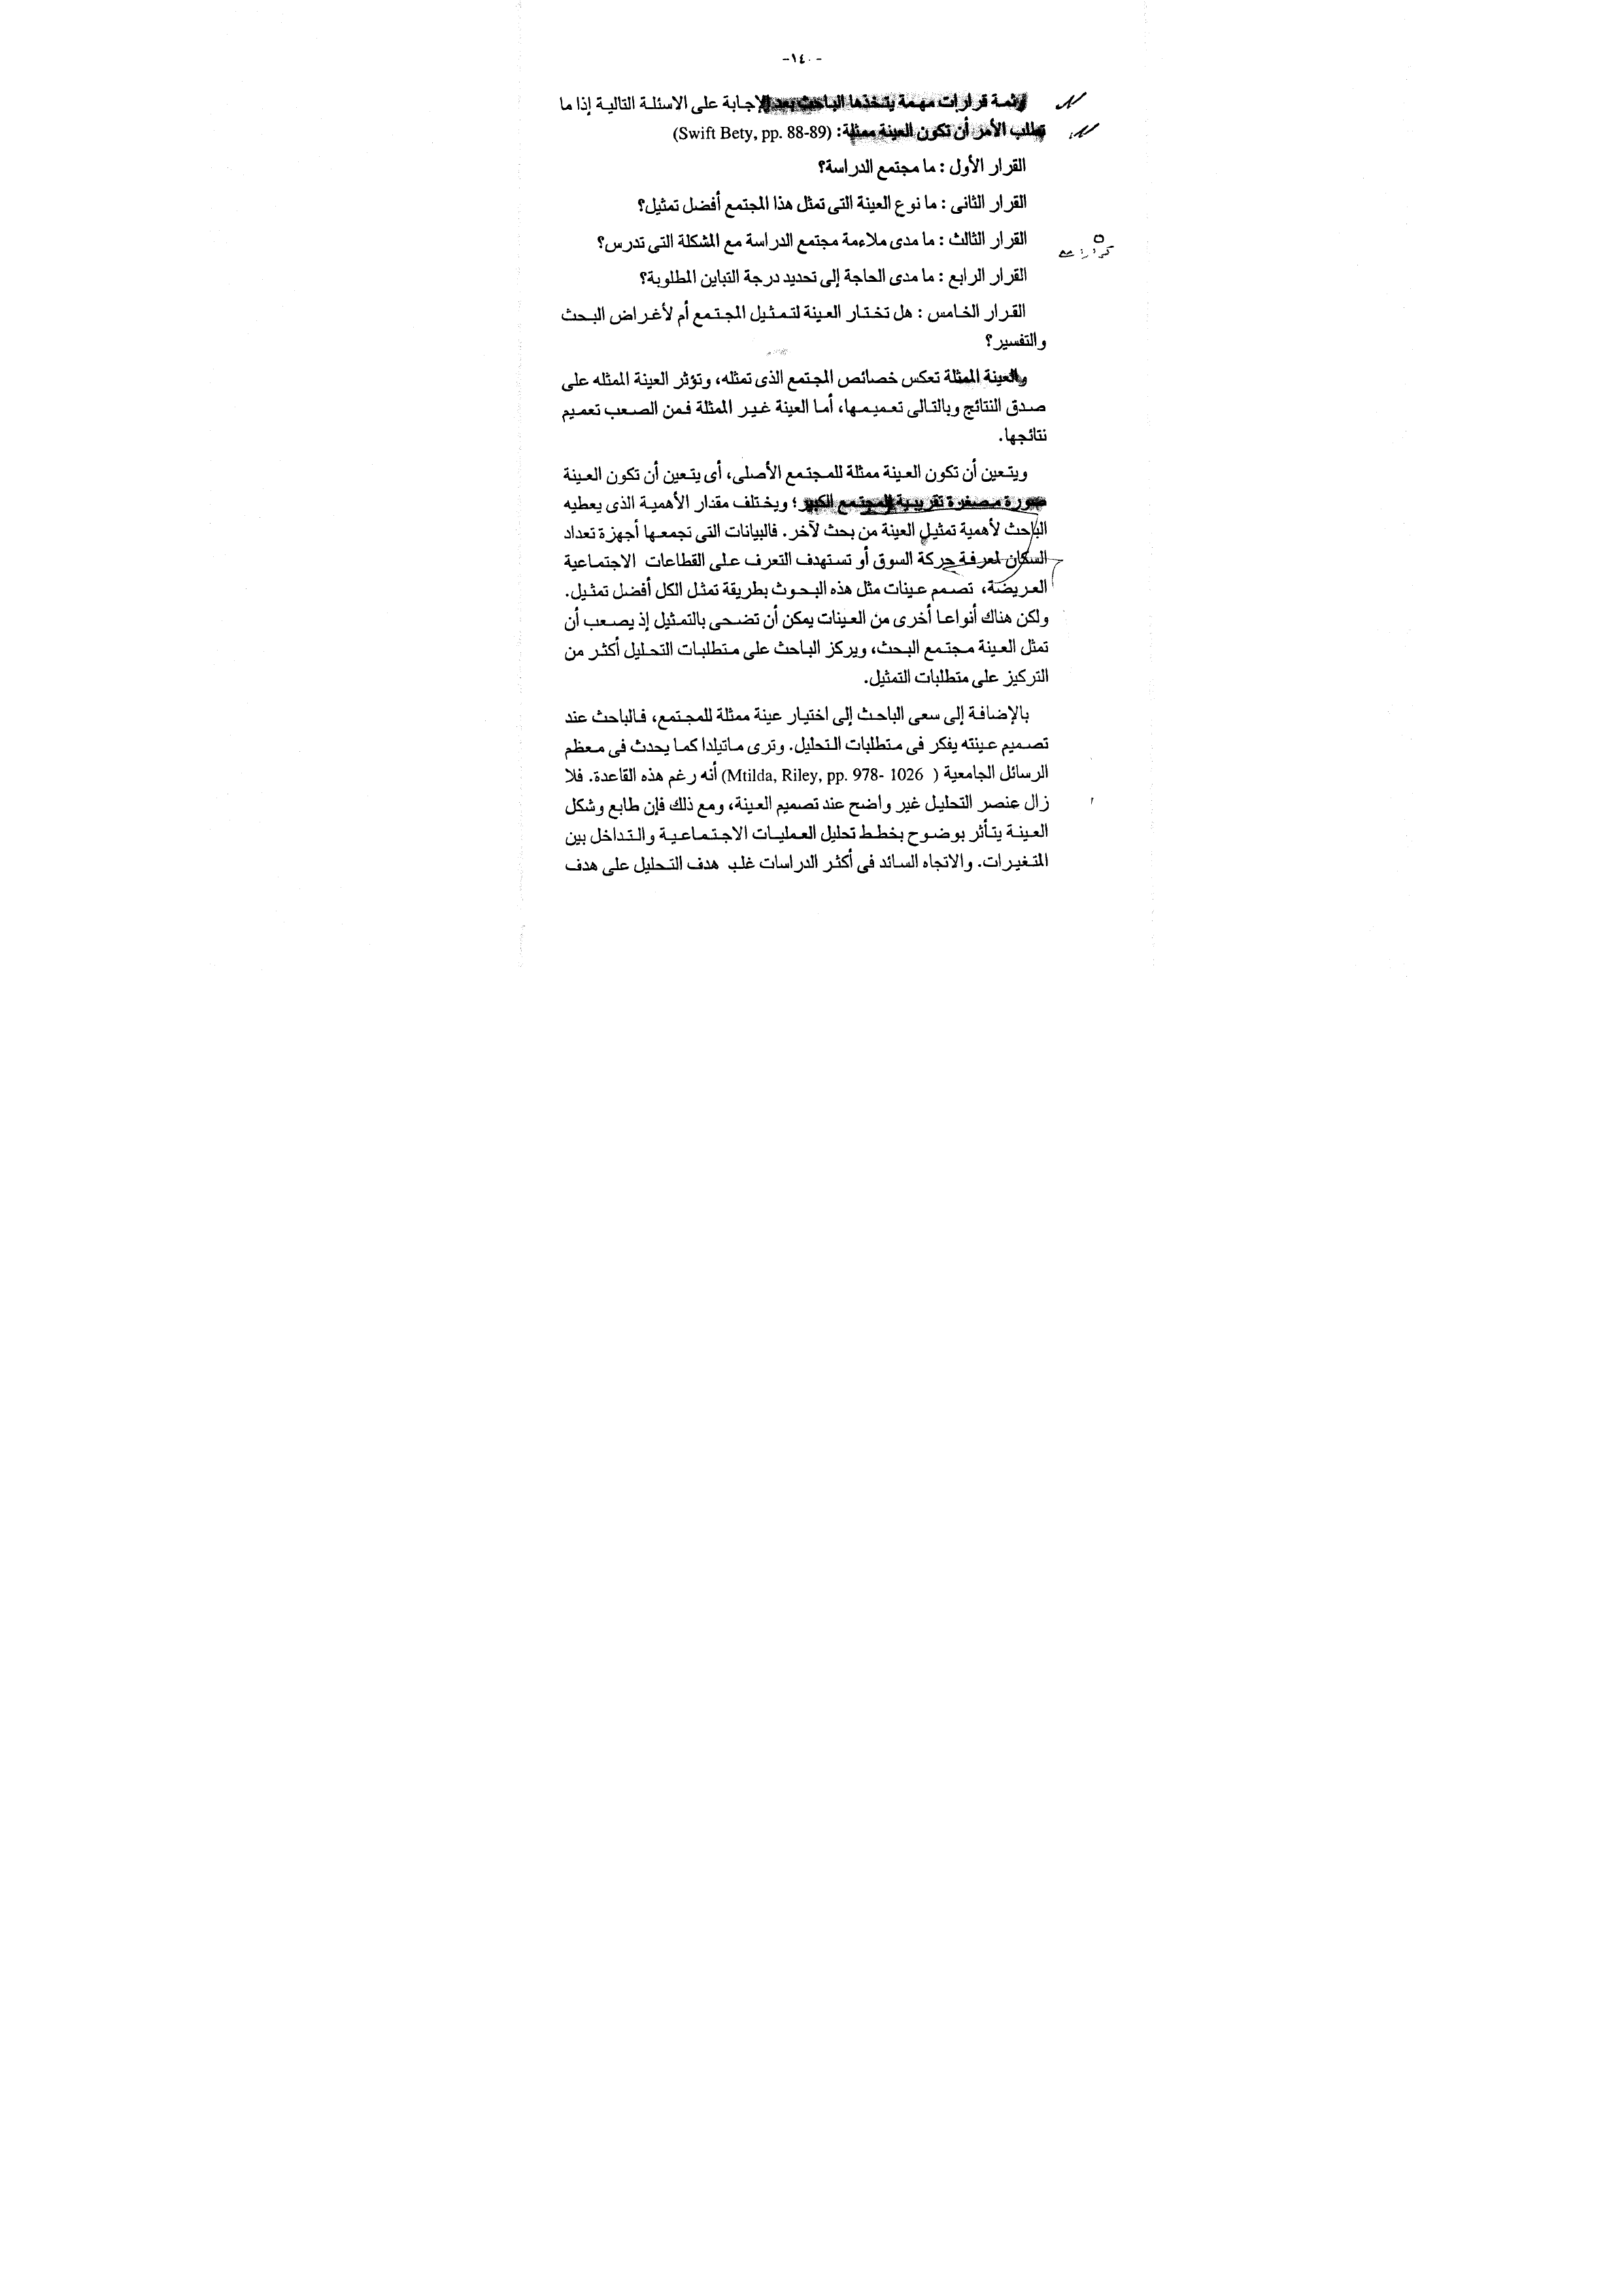 -١٤٠-
وثمة قرارات مهمة يتخذها الباحث بعد الإجابة على الاسئلة التالية إذا ما
تطلب الأمر أن تكون العينة ممثلة: (Swift Bety, pp. 88-89)
القرار الأول : ما مجتمع الدراسة؟
القرار الثانى : ما نوع العينة التى تمثل هذا المجتمع أفضل تمثيل؟
القرار الثالث : ما مدى ملاءمة مجتمع الدراسة مع المشكلة التى تدرس؟
القرار الرابع : ما مدى الحاجة إلى تحديد درجة التباين المطلوبة؟
القرار الخامس : هل تختار العينة لتمثيل المجتمع أم لأغراض البحث
والتفسير؟
والعينة الممثلة تعكس خصائص المجتمع الذى تمثله، وتؤثر العينة الممثله على
صدق النتائج وبالتالى تعميمها، أما العينة غير الممثلة فمن الصعب تعميم
نتائجها.
ويتعين أن تكون العينة ممثلة للمجتمع الأصلى، أى يتعين أن تكون العينة
صورة مصغرة تقريبية للمجتمع الكبير؛ ويختلف مقدار الأهمية الذى يعطيه
الباحث لأهمية تمثيل العينة من بحث لآخر. فالبيانات التى تجمعها أجهزة تعداد
السكان لمعرفة حركة السوق أو تستهدف التعرف على القطاعات الاجتماعية
العريضة، تصمم عينات مثل هذه البحوث بطريقة تمثل الكل أفضل تمثيل.
ولكن هناك أنواعا أخرى من العينات يمكن أن تضحى بالتمثيل إذ يصعب أن
تمثل العينة مجتمع البحث، ويركز الباحث على متطلبات التحليل أكثر من
التركيز على متطلبات التمثيل.
بالإضافة إلى سعى الباحث إلى اختيار عينة ممثلة للمجتمع، فالباحث عند
تصميم عينته يفكر فى متطلبات التحليل. وترى ماتيلدا كما يحدث فى معظم
الرسائل الجامعية ( Mtilda, Riley, pp. 978- 1026) أنه رغم هذه القاعدة. فلا
زال عنصر التحليل غير واضح عند تصميم العينة، ومع ذلك فإن طابع وشكل
العينة يتأثر بوضوح بخطط تحليل العمليات الاجتماعية والتداخل بين
المتغيرات. والاتجاه السائد فى أكثر الدراسات غلب هدف التحليل على هدف